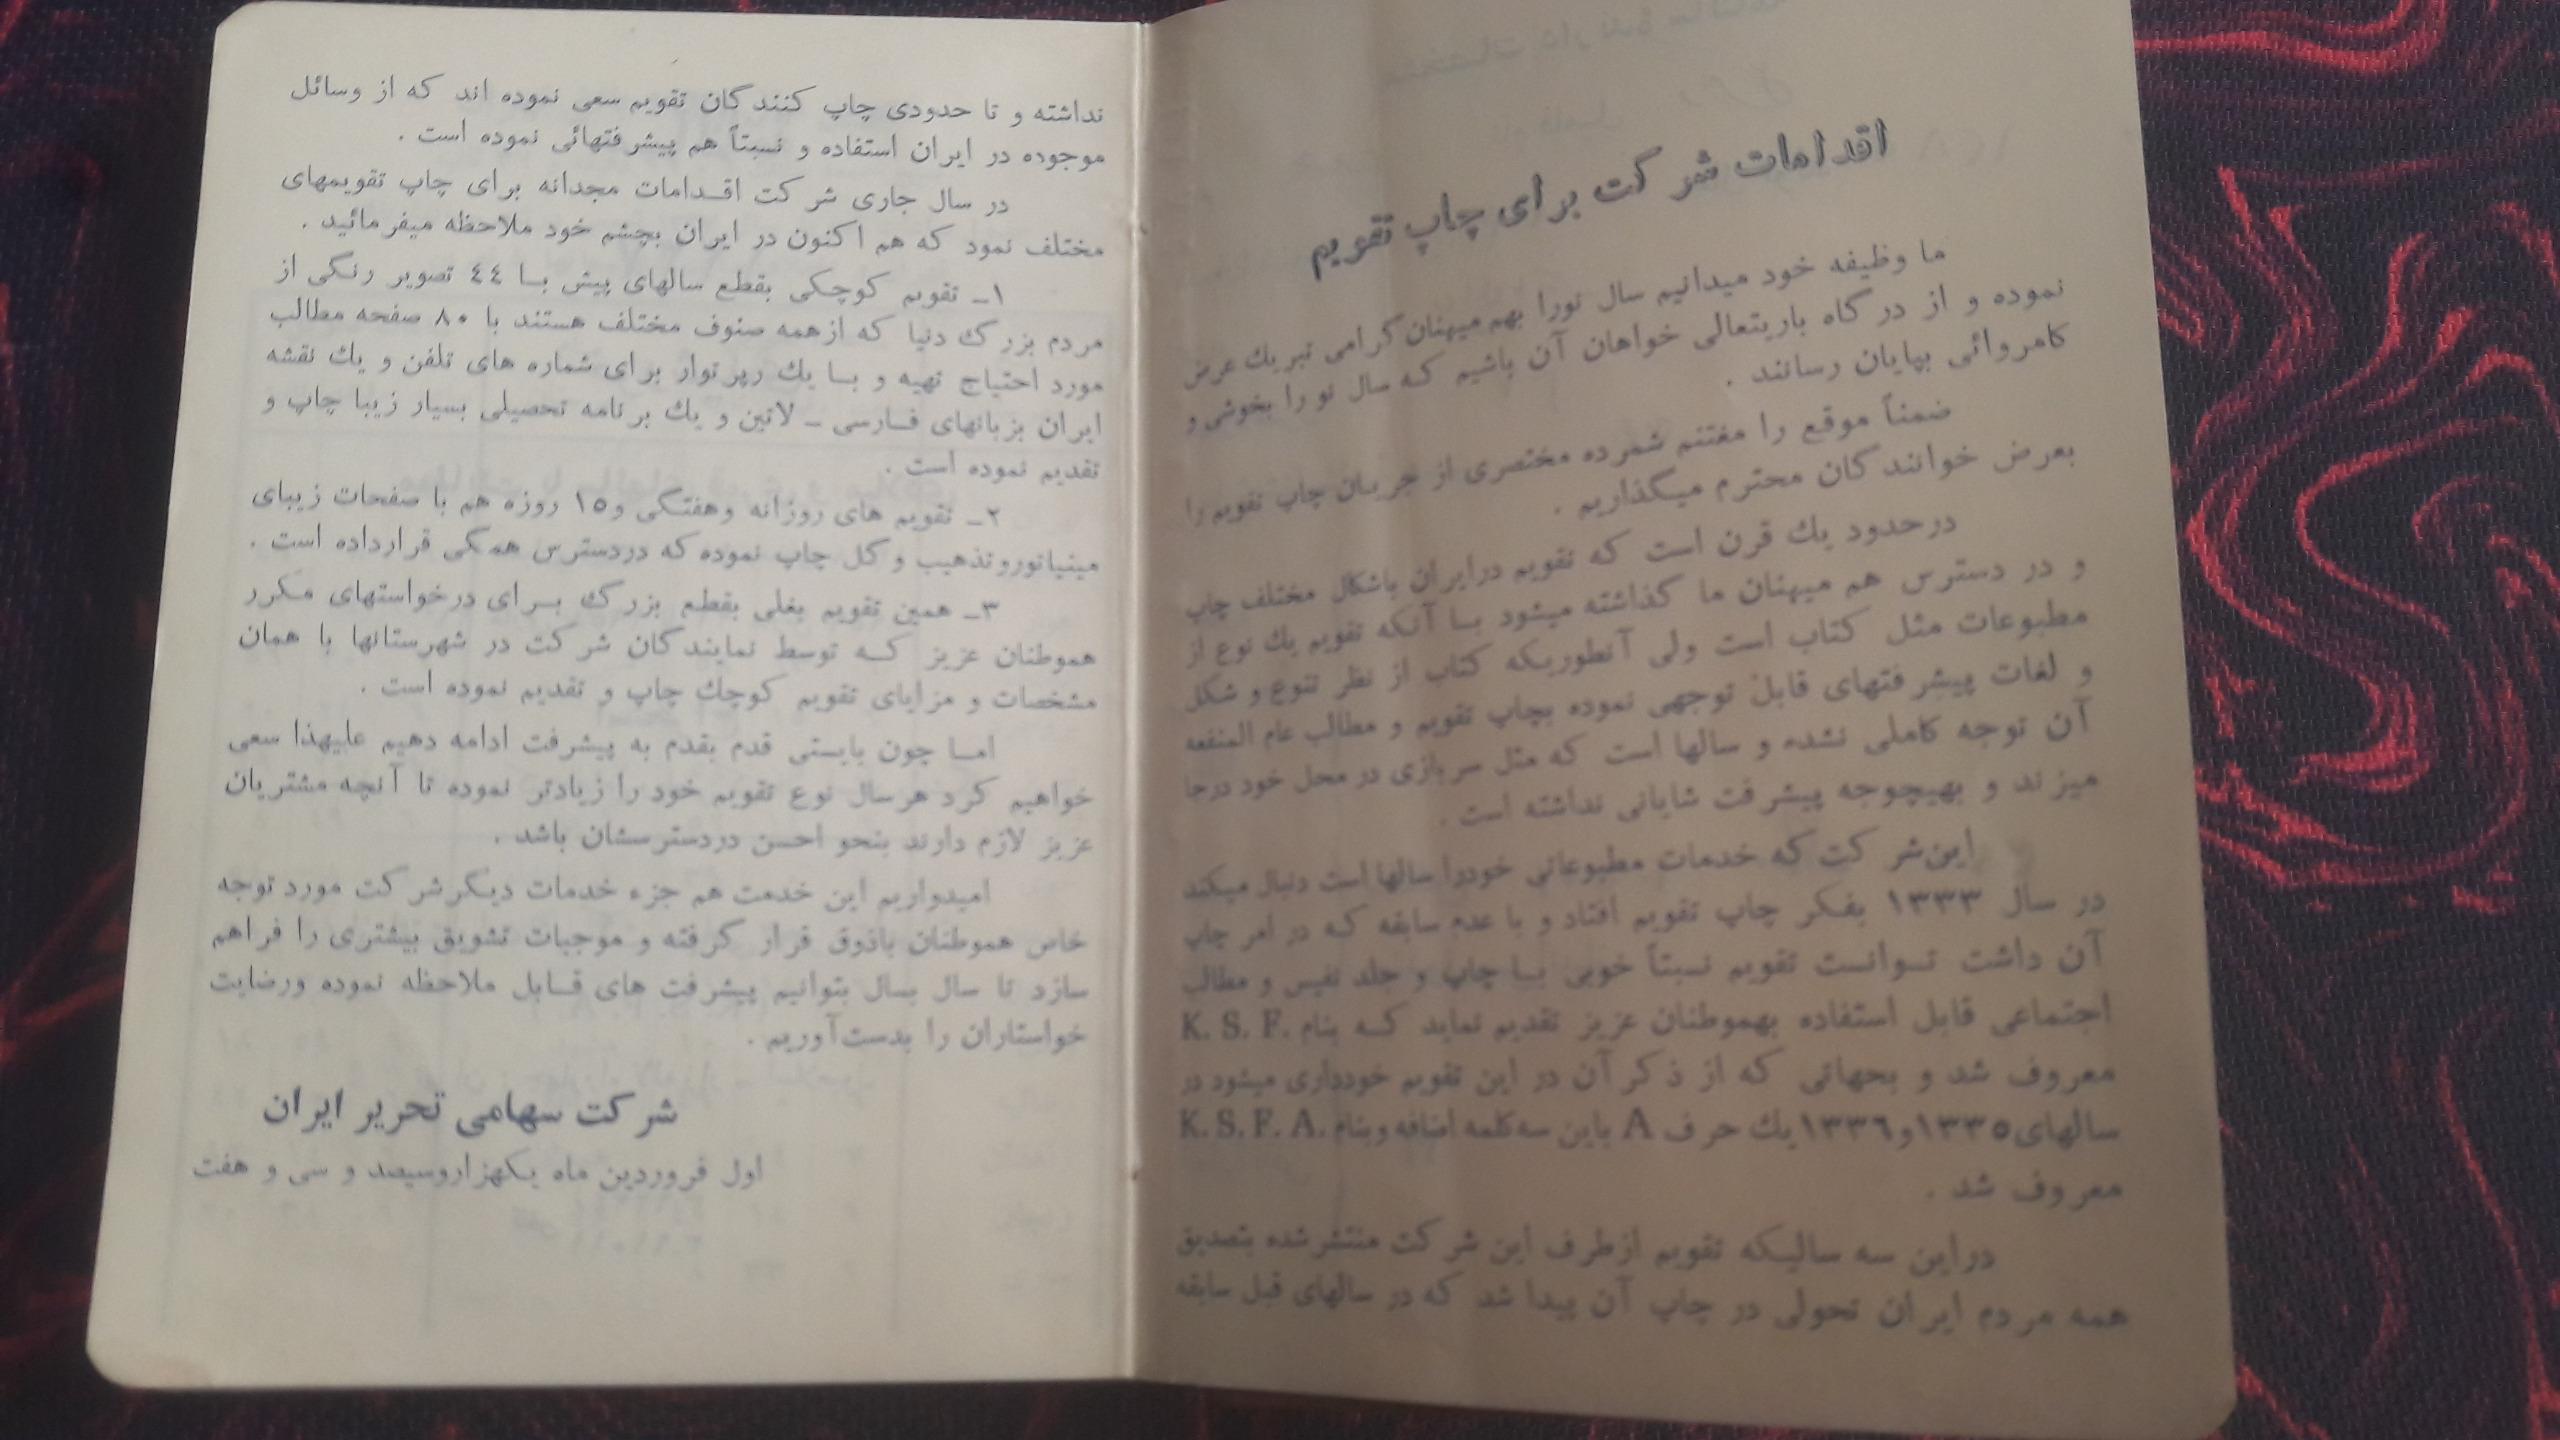 اقدامات شرکت برای چاپ تقویم
ما وظیفه خود میدانیم سال نورا بهم میهنان گرامی تبریك عرض
نموده و از درگاه باریتعالی خواهان آن باشیم که سال نو را بخوشی و
کامروائی بپایان رسانند .
ضمناً موقع را مغتنم شمرده مختصری از جریان چاپ تقویم را
بعرض خوانندگان محترم میگذاریم .
درحدود یك قرن است که تقویم درایران باشکال مختلف چاپ
و در دسترس هم میهنان ما گذاشته میشود با آنکه تقویم یك نوع از
مطبوعات مثل کتاب است ولی آنطوریکه کتاب از نظر تنوع و شکل
و لغات پیشرفتهای قابل توجهی نموده بچاپ تقویم و مطالب عام المنفعه
آن توجه کاملی نشده و سالها است که مثل سربازی در محل خود درجا
میزند و بهیچوجه پیشرفت شایانی نداشته است .
این شرکت که خدمات مطبوعاتی خودرا سالها است دنبال میکند
در سال ۱۳۳۳ بفکر چاپ تقویم افتاد و با عدم سابقه که در امر چاپ
آن داشت توانست تقویم نسبتاً خوبی با چاپ و جلد نفیس و مطالب
اجتماعی قابل استفاده بهموطنان عزیز تقدیم نماید که بنام K. S. F.
معروف شد و بجهاتی که از ذکر آن در این تقویم خودداری میشود در
سالهای ۱۳۳۵ و ۱۳۳۶ یك حرف A باین سه کلمه اضافه و بنام K. S. F. A.
معروف شد .
دراین سه سالیکه تقویم ازطرف این شرکت منتشر شده بتصدیق
همه مردم ایران تحولی در چاپ آن پیدا شد که در سالهای قبل سابقه
نداشته و تا حدودی چاپ کنندگان تقویم سعی نموده اند که از وسائل
موجوده در ایران استفاده و نسبتاً هم پیشرفتهائی نموده است .
در سال جاری شرکت اقدامات مجدانه برای چاپ تقویمهای
مختلف نمود که هم اکنون در ایران بچشم خود ملاحظه میفرمائید .
۱ـ تقویم کوچکی بقطع سالهای پیش با ٤٤ تصویر رنگی از
مردم بزرگ دنیا که ازهمه صنوف مختلف هستند با ۸۰ صفحه مطالب
مورد احتیاج تهیه و با یك رپرتوار برای شماره های تلفن و یك نقشه
ایران بزبانهای فارسی ـ لاتین و یك برنامه تحصیلی بسیار زیبا چاپ و
تقدیم نموده است .
۲ـ تقویم های روزانه وهفتگی و۱۵ روزه هم با صفحات زیبای
مینیاتوروتذهیب و گل چاپ نموده که دردسترس همگی قرارداده است .
۳ـ همین تقویم بغلی بقطع بزرگ برای درخواستهای مکرر
هموطنان عزیز که توسط نمایندگان شرکت در شهرستانها با همان
مشخصات و مزایای تقویم کوچك چاپ و تقدیم نموده است .
اما چون بایستی قدم بقدم به پیشرفت ادامه دهیم علیهذا سعی
خواهیم کرد هرسال نوع تقویم خود را زیادتر نموده تا آنچه مشتریان
عزیز لازم دارند بنحو احسن دردسترسشان باشد .
امیدواریم این خدمت هم جزء خدمات دیگر شرکت مورد توجه
خاص هموطنان باذوق قرار گرفته و موجبات تشویق بیشتری را فراهم
سازد تا سال بسال بتوانیم پیشرفت های قابل ملاحظه نموده ورضایت
خواستاران را بدست آوریم .
شرکت سهامی تحریر ایران
اول فروردین ماه یکهزاروسیصد و سی و هفت